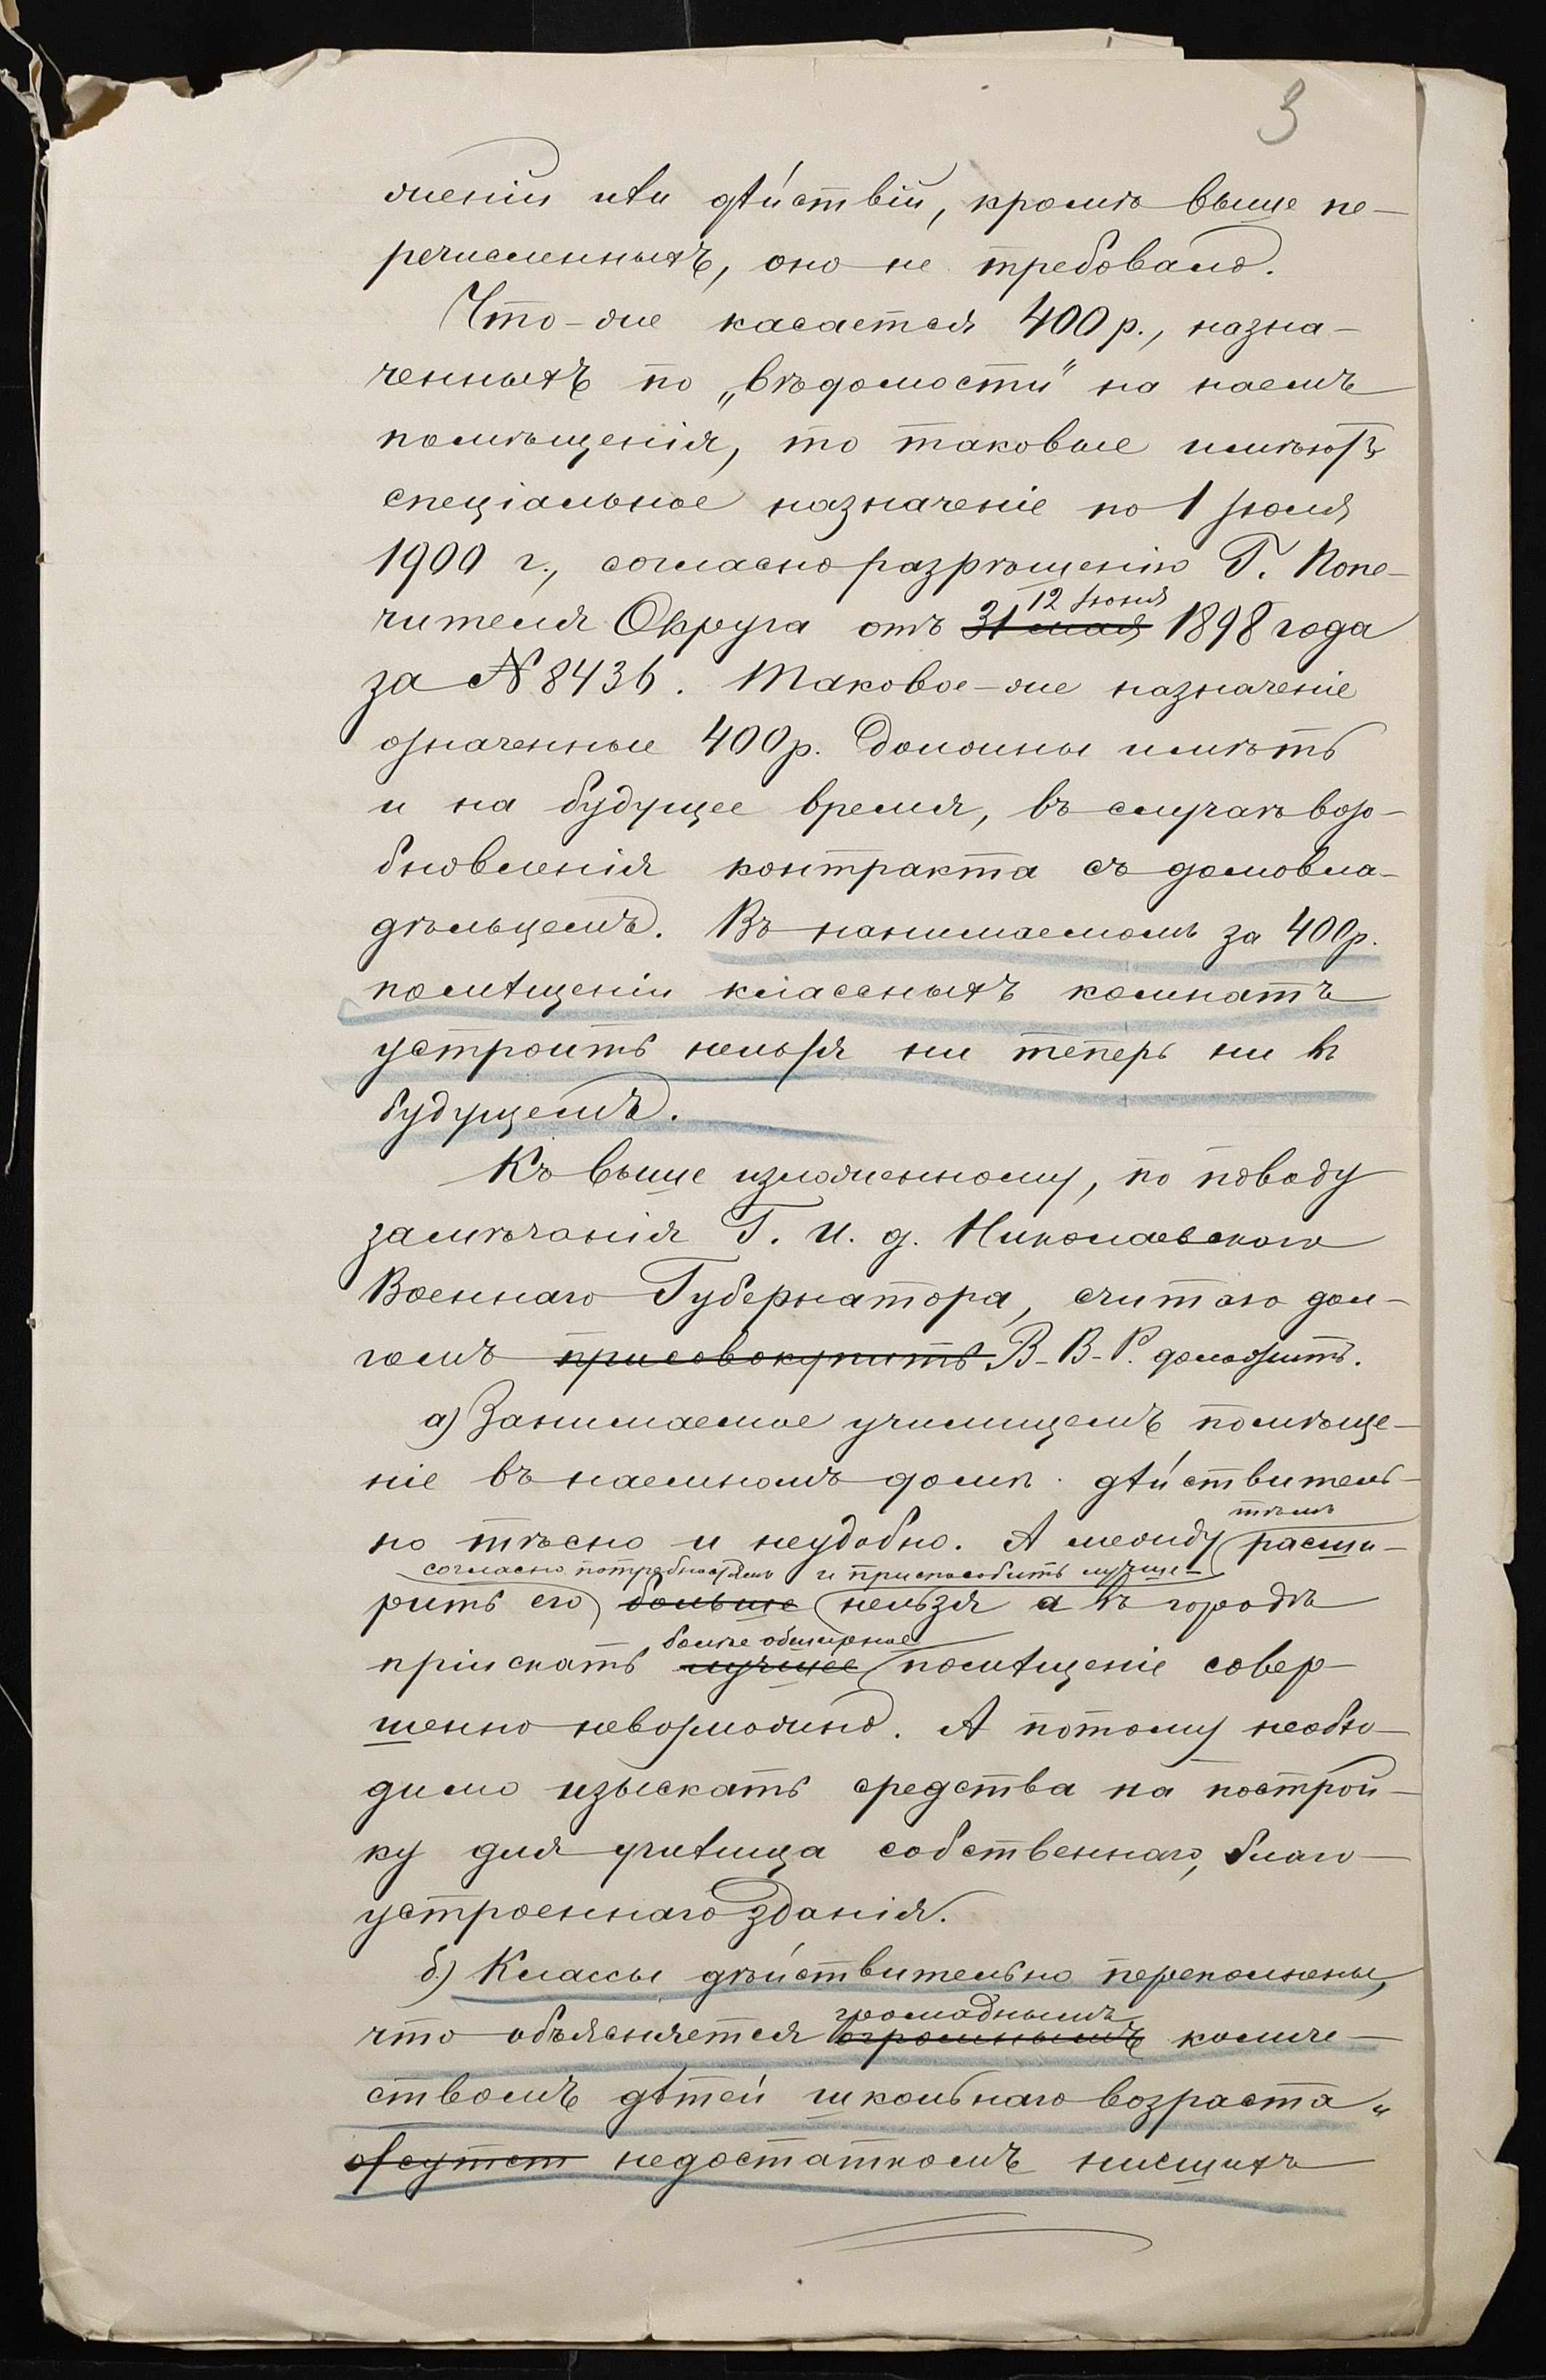 3
женіи или дѣйствій, кромѣ выше пе-
речисленныхъ, оно не требовало.
Что-же касается 400 р., назна-
ченныхъ по „вѣдомости" на наемъ
помѣщенія, то таковые имѣютъ
спеціальное назначеніе по 1 Іюля
1900 г., согласно разрѣшенію Г. Попе-
12 Іюня
чителя Округа отъ 31 мая 1898 года
за № 8436. Таковое-же назначеніе
означенные 400 р. должны имѣть
и на будущее время, въ случаѣ возо-
бновленія контракта съ домовла-
дѣльцемъ. Въ нанимаемомъ за 400 р.
помѣщеніи классныхъ комнатъ
устроить нельзя ни теперь ни въ
будущемъ.
Къ выше изложенному, по поводу
замѣчанія Г. И. д. Николаевскаго
Военнаго Губернатора, считаю дол-
гомъ присовокупить В-В-Р. доложить.
а) Занимаемое училищемъ помѣще-
ніе въ наемномъ домѣ дѣйствитель-
тѣмъ
но тѣсно и неудобно. А между расши-
согласно потребностямъ и приспособить лучше
рить его больше нельзя а въ городѣ
болѣе обширное
пріискать лучшее помѣщеніе совер-
шенно невозможно. А потому необхо-
димо изыскать средства на построй-
ку для училища собственнаго, благо-
устроеннаго зданія.
б) Классы дѣйствительно переполнены,
громаднымъ
что объясняется огромнымъ количе-
ствомъ дѣтей школьнаго возраста и
отсутст недостаткомъ низшихъ